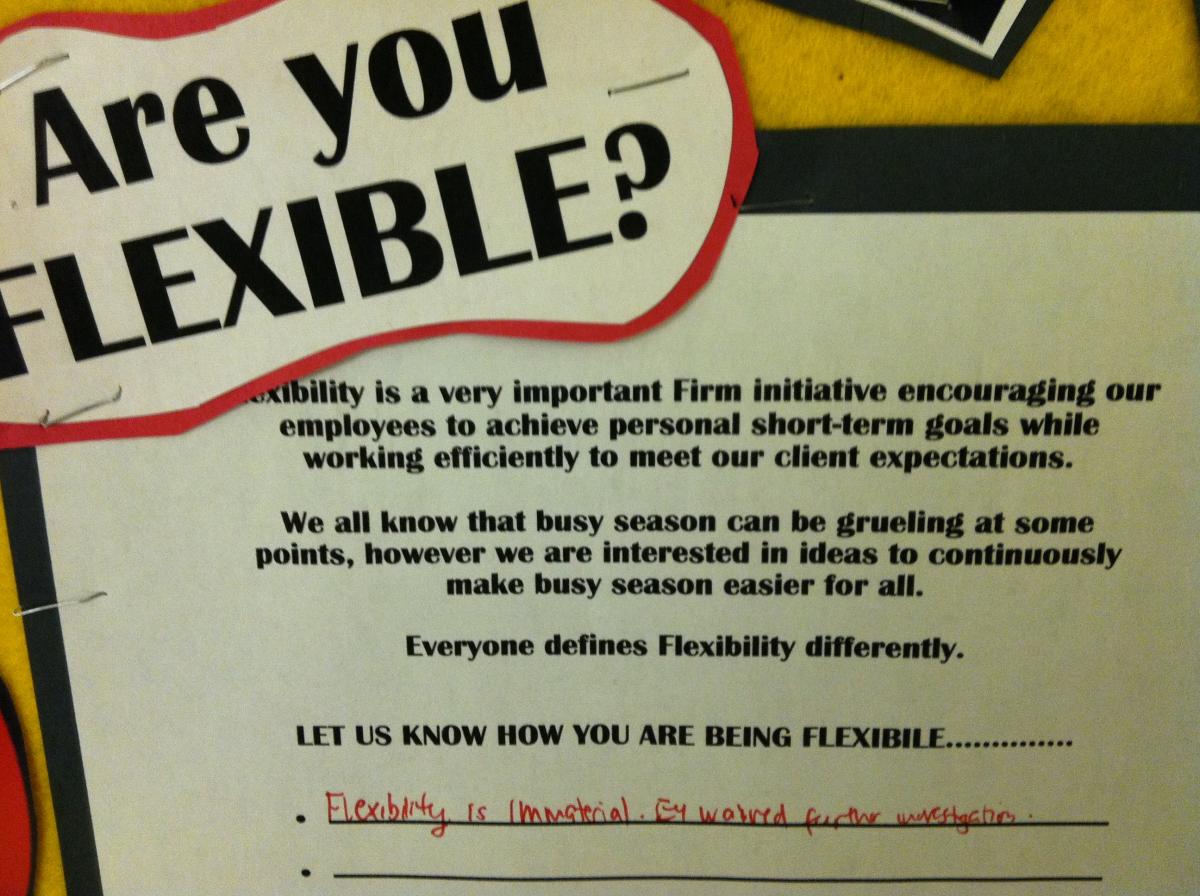 Are you
FLEXIBLE?
exibility is a very important Firm initiative encouraging our
employees to achieve personal short-term goals while
working efficiently to meet our client expectations.
We all know that busy season can be grueling at some
points, however we are interested in ideas to continuously
make busy season easier for all.
Everyone defines Flexibility differently.
LET US KNOW HOW YOU ARE BEING FLEXIBILE..............
• Flexibility is Immaterial. EY waived further investigation.
•